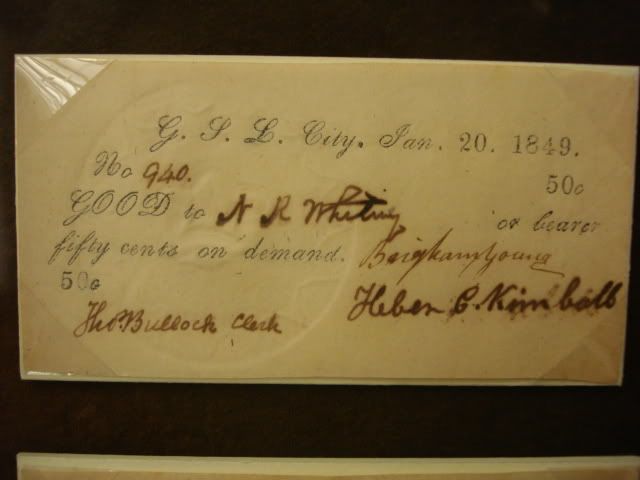 G. S. L. City, Jan. 20. 1849.
No 940.
50c
GOOD to N R Whiting or bearer
fifty cents on demand. Brigham Young
50c
Heber C. Kimball
Tho Bullock Clerk